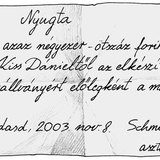 Nyugta
azaz negyezer-ötszáz forin
Kiss Dánieltől az elkészí
állványért előlegként a m
dasd, 2003. nov. 8. Schm
aszt